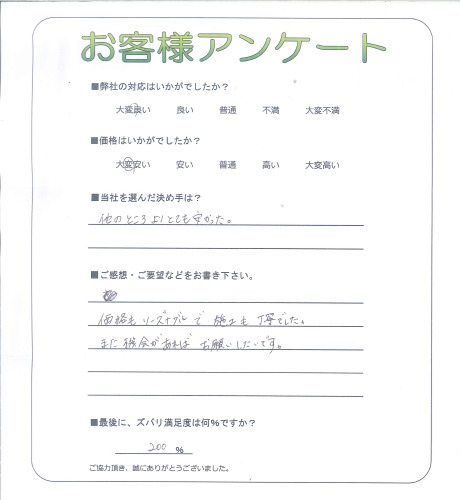 お客様アンケート
■弊社の対応はいかがでしたか？
大変良い 良い 普通 不満 大変不満
■価格はいかがでしたか？
大変安い 安い 普通 高い 大変高い
■当社を選んだ決め手は？
他のところよりとても安かった。
■ご感想・ご要望などをお書き下さい。
価格もリーズナブルで 施工も 丁寧でした。
また機会があれば お願いしたいです。
■最後に、ズバリ満足度は何%ですか？
200 %
ご協力頂き、誠にありがとうございました。